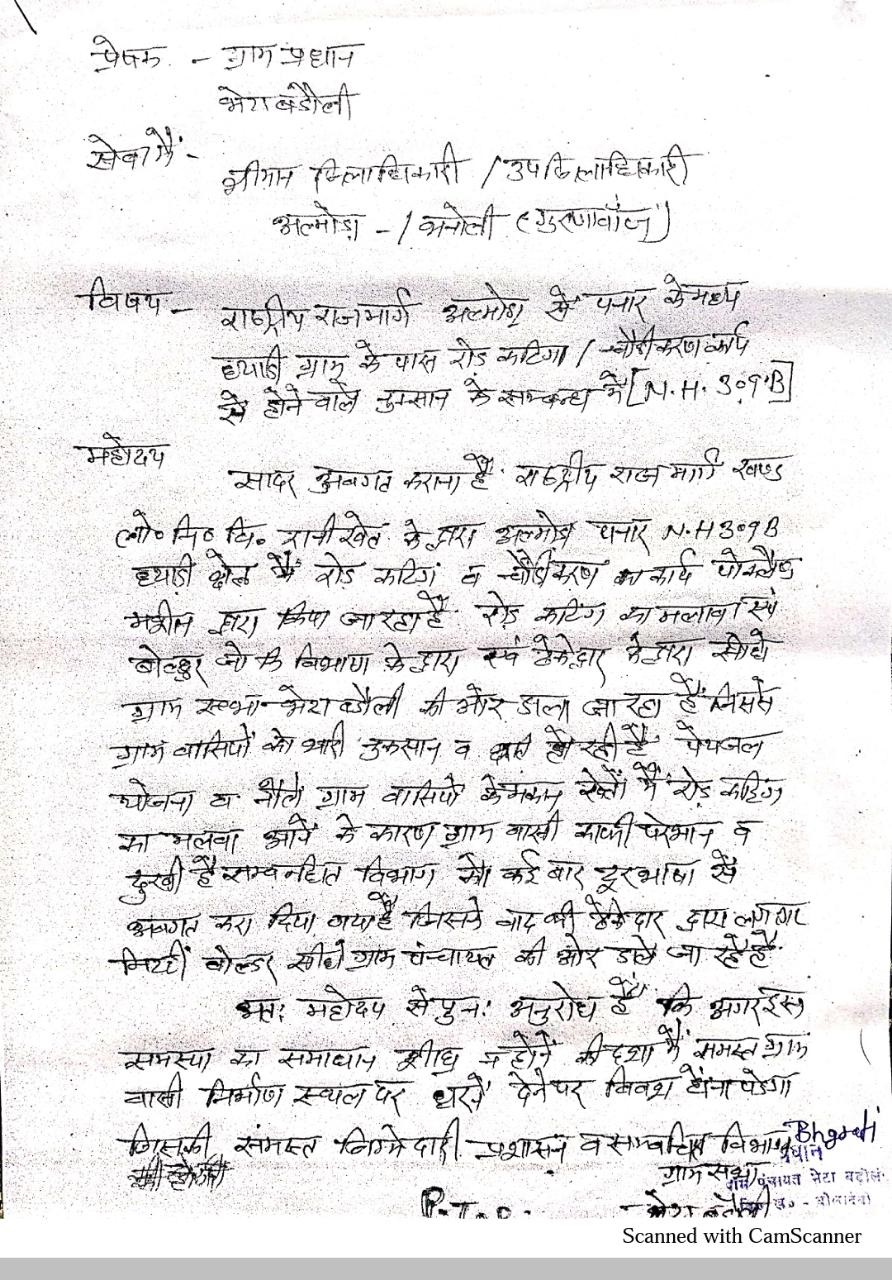 प्रेषक - ग्राम प्रधान
भेटा बडौली
सेवा में -
श्रीमान जिलाधिकारी / उपजिलाधिकारी
अल्मोडा - / भनोली (गुरुणाबाँज)
विषय - राष्ट्रीय राजमार्ग अल्मोडा से पनार के मध्य
ध्याडी ग्राम के पास रोड कटिंग / चौडीकरण कार्य
से होने वाले नुकसान के सम्बन्ध में [N.H. 309B]
महोदय
सादर अवगत कराना है राष्ट्रीय राज मार्ग खण्ड
लो० नि० वि० रानीखेत के द्वारा अल्मोडा पनार N.H 309B
ध्याडी क्षेत्र में रोड कटिंग व चौडीकरण का कार्य पोकलैण्ड
मशीन द्वारा किया जा रहा है रोड कटिंग का मलावा एवं
बोल्डर जो कि विभाग के द्वारा एवं ठेकेदार के द्वारा सीधे
ग्राम सभा भेटा बडौली की ओर डाला जा रहा है जिससे
ग्राम वासियों को भारी नुकसान व क्षति हो रही है पेयजल
योजना व नौले ग्राम वासियों के मकान खेतों में रोड़ कटिंग
का मलवा आने के कारण ग्राम वासी काफी परेशान व
दुखी है सम्बन्धित विभाग को कई बार दूरभाषा से
अवगत करा दिया गया है जिसके बाद भी ठेकेदार द्वारा लगातार
मिट्टी बोल्डर सीधे ग्राम पंचायत की ओर डाले जा रहे है
अतः महोदय से पुनः अनुरोध है कि अगर इस
समस्या का समाधान शीघ्र न होने की दशा में समस्त ग्राम
वासी निर्माण स्थल पर धरने देने पर विवश होना पडेगा
जिसकी समस्त जिम्मेदारी प्रशासन व सम्बन्धित विभाग
Bharati
प्रधान
ग्राम सभा
ग्राम पंचायत भेटा बडौली
P.T.O.
भेटा बडौली
Scanned with CamScanner